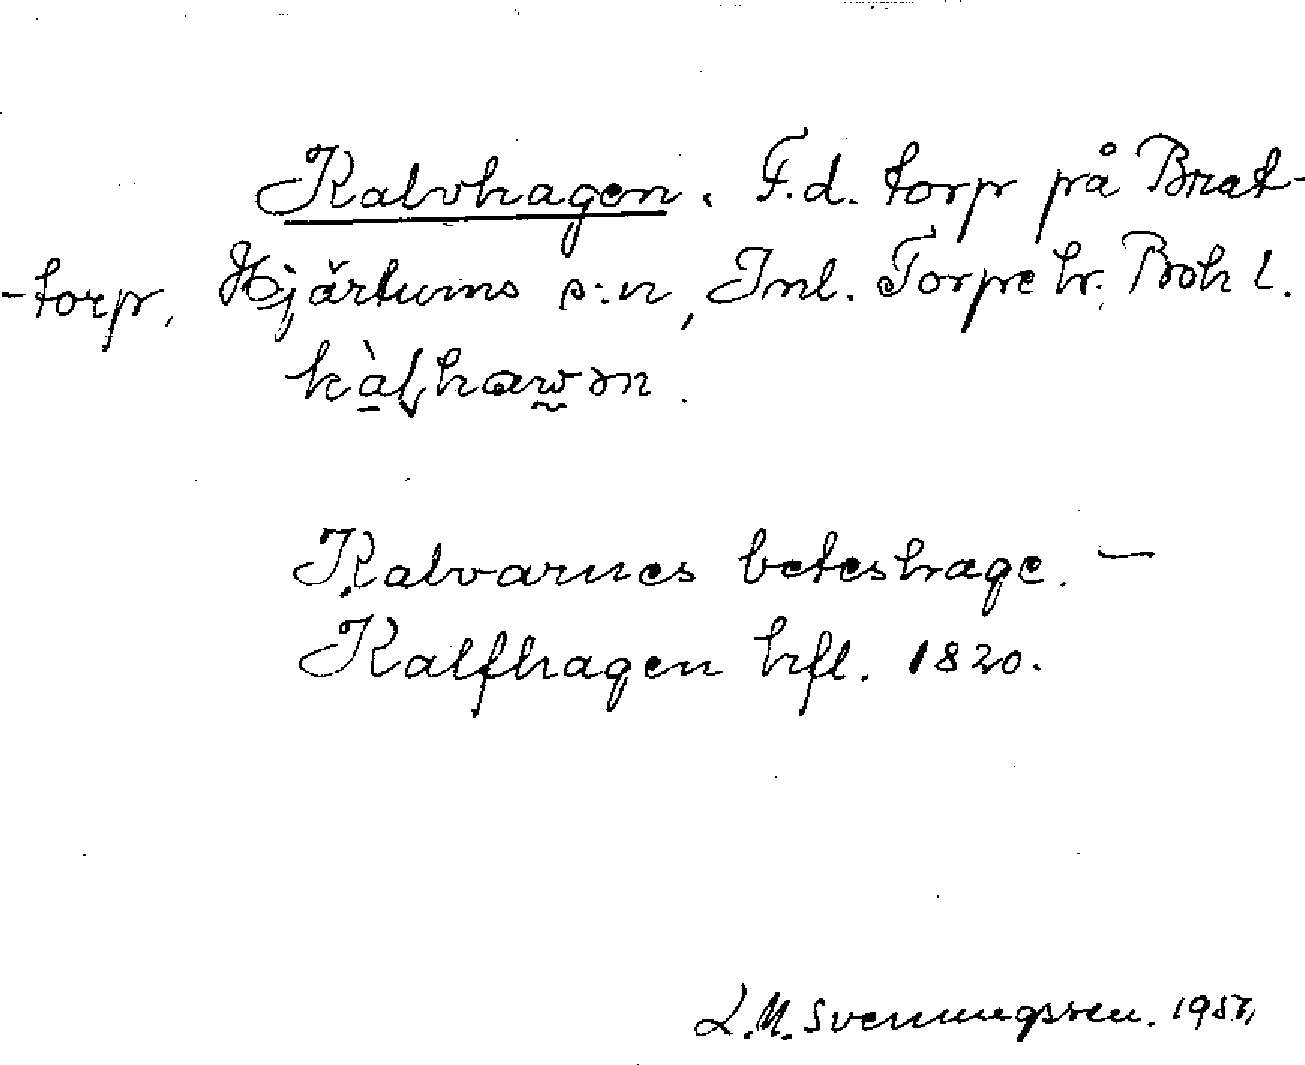 Kalvhagen. F.d. torp på Brat-
-torp, Hjärtums s:n, Inl. Torpe hr. Boh l.
kàlhawən.
Kalvarnes beteshage. —
Kalfhagen hfl. 1820.
L.M. Svenungsson. 1951.